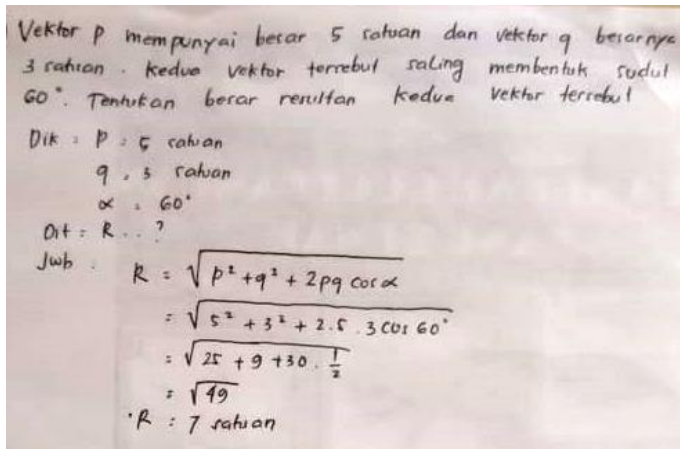 Vektor p mempunyai besar 5 satuan dan vektor q besarnya
3 satuan. Kedua vektor tersebut saling membentuk sudut
60°. Tentukan besar resultan kedua vektor tersebut
Dik : P : 5 satuan
q : 3 satuan
α : 60°
Dit : R . . ?
Jwb :
R = √p² + q² + 2pq cos α
= √5² + 3² + 2.5.3 cos 60°
= √25 + 9 + 30 . 1/2
= √49
R : 7 satuan